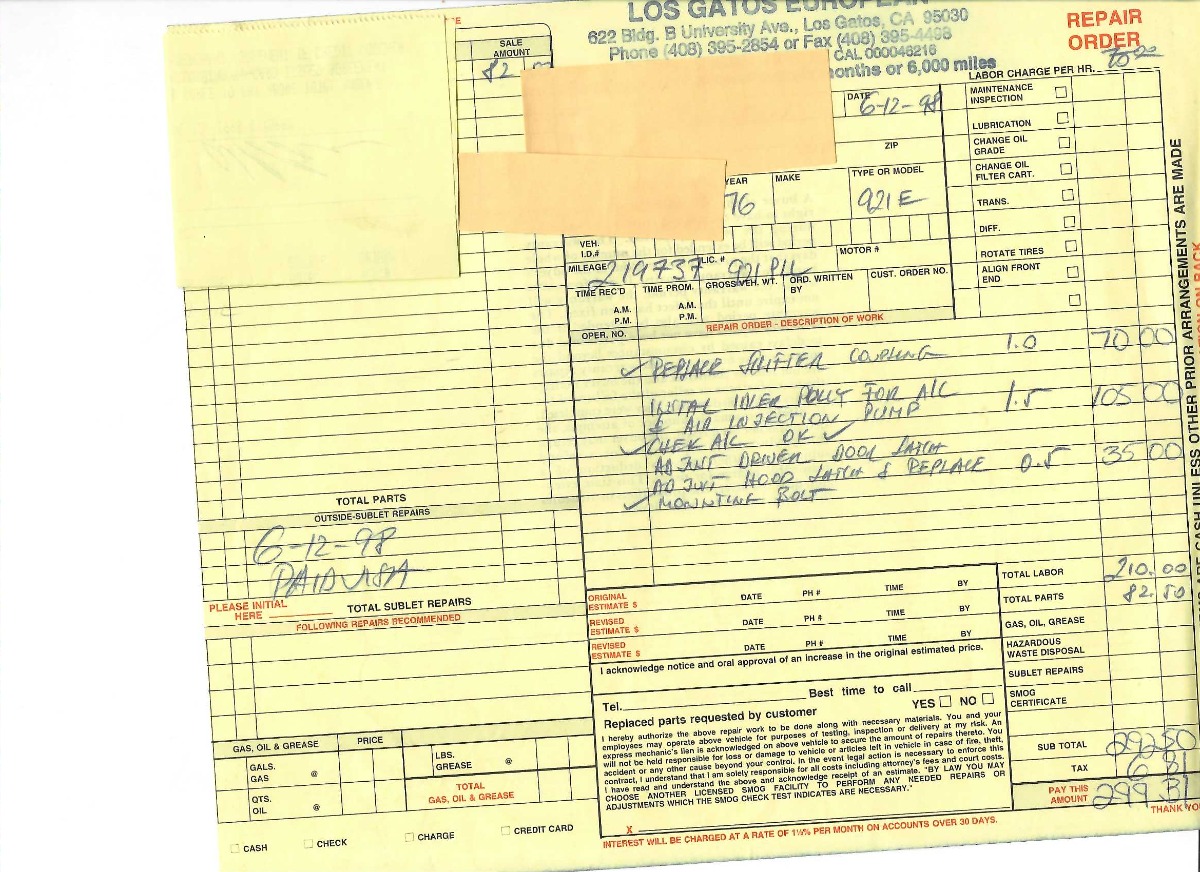 LOS GATOS EUROPEAN
622 Bldg. B University Ave., Los Gatos, CA 95030
Phone (408) 395-2854 or Fax (408) 395-4498
CAL 000046216
months or 6,000 miles
REPAIR
ORDER
LABOR CHARGE PER HR. 70.00
SALE
AMOUNT
82
DATE 6-12-98
ZIP
YEAR MAKE TYPE OR MODEL
76 921E
VEH.
I.D.#
MOTOR #
MILEAGE 219737 LIC. # 921 PIL
TIME REC'D TIME PROM. GROSS VEH. WT. ORD. WRITTEN BY CUST. ORDER NO.
A.M. A.M.
P.M. P.M.
OPER. NO. REPAIR ORDER - DESCRIPTION OF WORK
MAINTENANCE
INSPECTION
LUBRICATION
CHANGE OIL
GRADE
CHANGE OIL
FILTER CART.
TRANS.
DIFF.
ROTATE TIRES
ALIGN FRONT
END
✓ REPLACE SHIFTER COUPLING 1.0 70 00
INSTAL IDLER PULLY FOR A/C 1.5 105 00
& AIR INJECTION PUMP
✓ CHEK A/C OK ✓
ADJUNT DRIVER DOOR LATCH
ADJUNT HOOD LATCH & REPLACE 0.5 35 00
✓ MOUNTING BOLT
TOTAL PARTS
OUTSIDE-SUBLET REPAIRS
6-12-98
PAID VISA
PLEASE INITIAL
HERE TOTAL SUBLET REPAIRS
FOLLOWING REPAIRS RECOMMENDED
ORIGINAL
ESTIMATE $ DATE PH # TIME BY
REVISED
ESTIMATE $ DATE PH # TIME BY
REVISED
ESTIMATE $ DATE PH # TIME BY
I acknowledge notice and oral approval of an increase in the original estimated price.
Tel. Best time to call
Replaced parts requested by customer YES NO
I hereby authorize the above repair work to be done along with necessary materials. You and your
employees may operate above vehicle for purposes of testing, inspection or delivery at my risk. An
express mechanic's lien is acknowledged on above vehicle to secure the amount of repairs thereto. You
will not be held responsible for loss or damage to vehicle or articles left in vehicle in case of fire, theft,
accident or any other cause beyond your control. In the event legal action is necessary to enforce this
contract, I understand that I am solely responsible for all costs including attorney's fees and court costs.
I have read and understand the above and acknowledge receipt of an estimate. "BY LAW YOU MAY
CHOOSE ANOTHER LICENSED SMOG FACILITY TO PERFORM ANY NEEDED REPAIRS OR
ADJUSTMENTS WHICH THE SMOG CHECK TEST INDICATES ARE NECESSARY."
X
INTEREST WILL BE CHARGED AT A RATE OF 1½% PER MONTH ON ACCOUNTS OVER 30 DAYS.
TOTAL LABOR 210.00
TOTAL PARTS 82.50
GAS, OIL, GREASE
HAZARDOUS
WASTE DISPOSAL
SUBLET REPAIRS
SMOG
CERTIFICATE
SUB TOTAL 292 50
TAX 6 81
PAY THIS
AMOUNT 299 31
THANK YOU
GAS, OIL & GREASE PRICE
GALS.
GAS @
QTS.
OIL @
LBS.
GREASE @
TOTAL
GAS, OIL & GREASE
CASH CHECK CHARGE CREDIT CARD
CASH UNLESS OTHER PRIOR ARRANGEMENTS ARE MADE
ON BACK